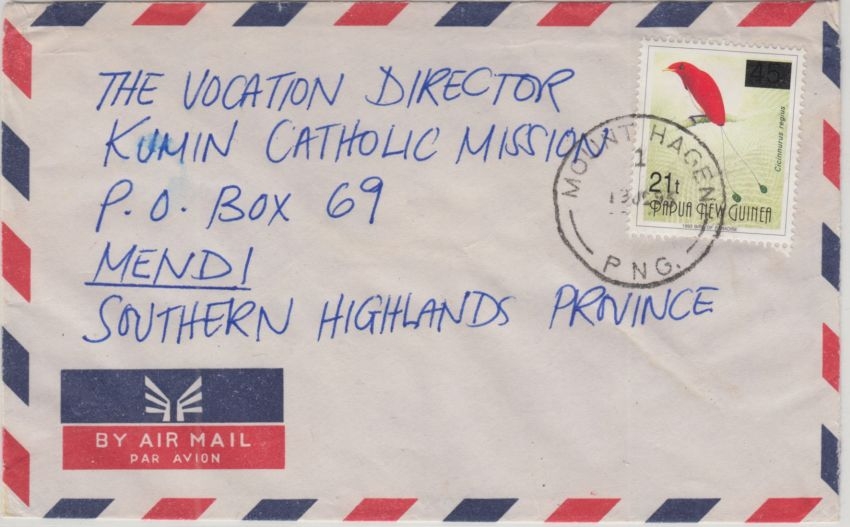 THE VOCATION DIRECTOR
KUMIN CATHOLIC MISSION
P.O. BOX 69
MENDI
SOUTHERN HIGHLANDS PROVINCE
45t
Cicinnurus regius
21t
PAPUA NEW GUINEA
MOUNT HAGEN
1
P.N.G.
BY AIR MAIL
PAR AVION